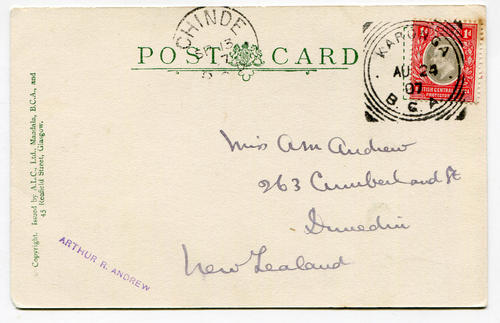 CHINDE
POST CARD
KARONGA
AU 24
07
B.C.A.
1d 1d
BRITISH CENTRAL
PROTECTORATE
Copyright. Issued by A.L.C. Ltd. Mandala, B.C.A., and
45 Renfield Street, Glasgow.
Miss AM Andrew
263 Cumberland St
Dunedin
New Zealand
ARTHUR R. ANDREW